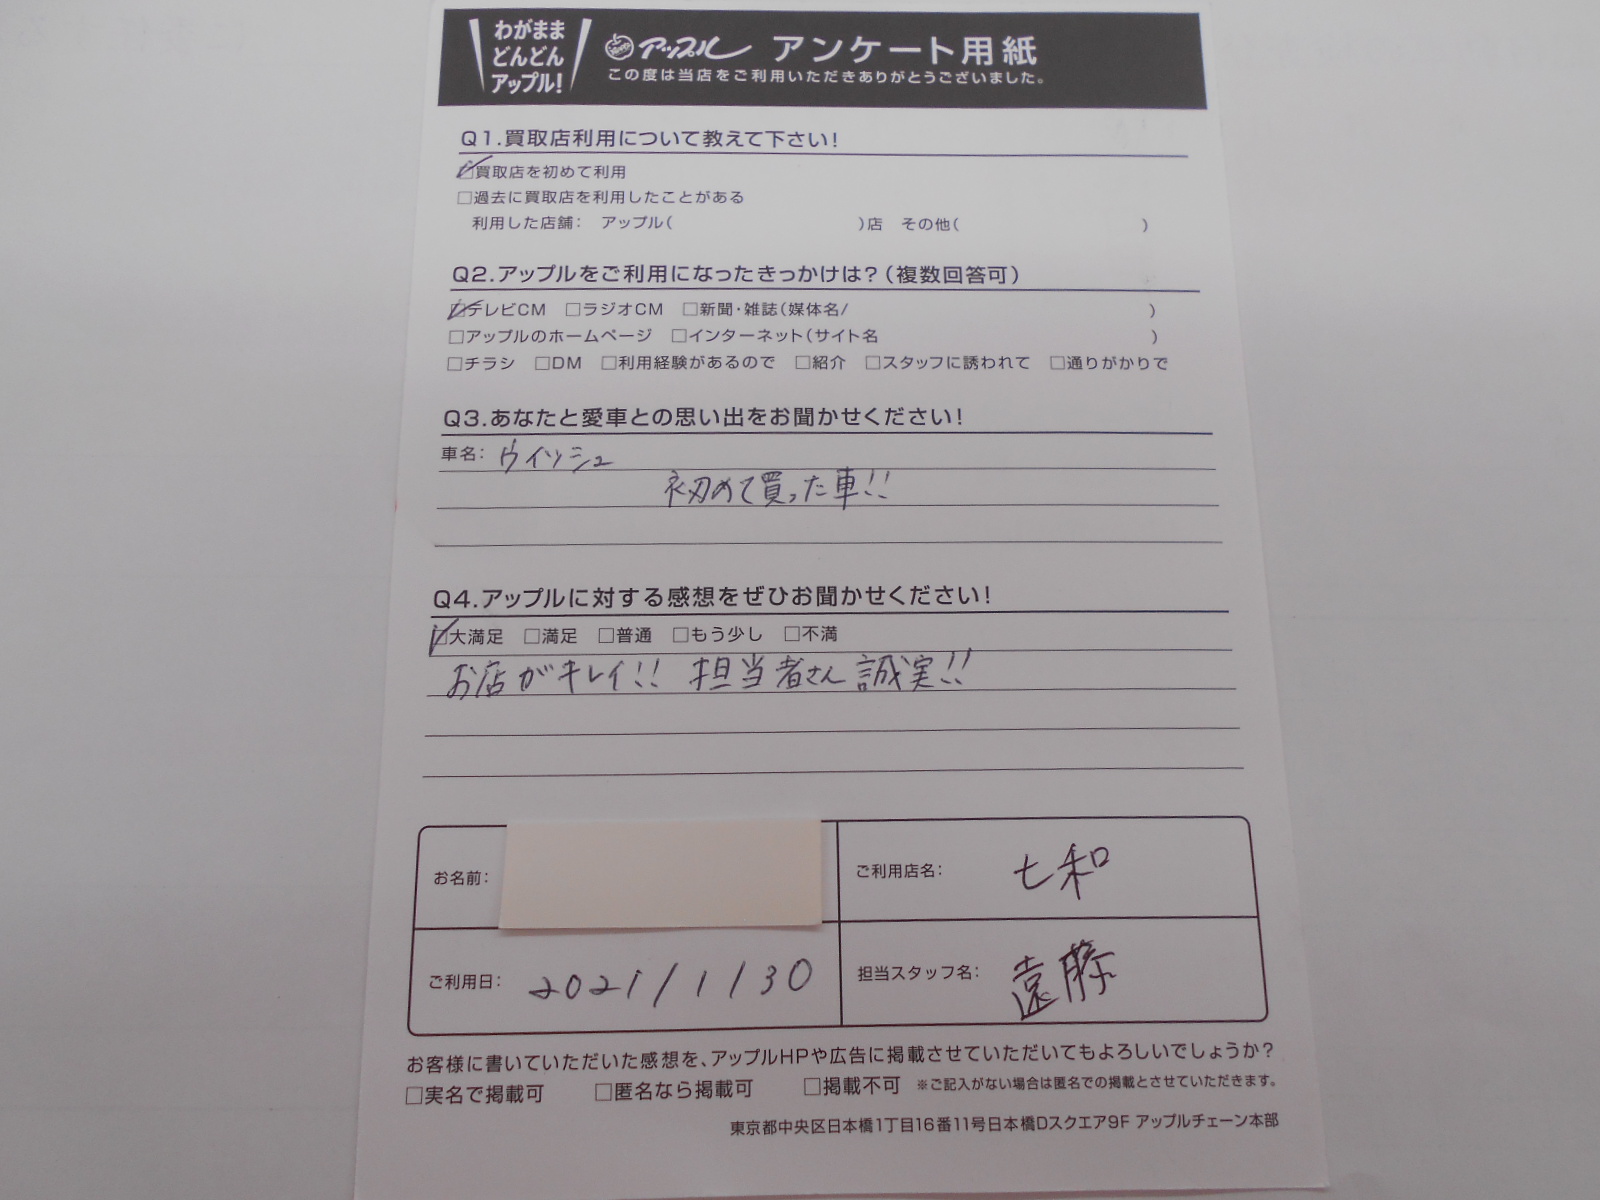 わがまま
どんどん
アップル!
アップル アンケート用紙
この度は当店をご利用いただきありがとうございました。
Q1.買取店利用について教えて下さい!
☑買取店を初めて利用
□過去に買取店を利用したことがある
利用した店舗: アップル( )店 その他( )
Q2.アップルをご利用になったきっかけは?(複数回答可)
☑テレビCM □ラジオCM □新聞・雑誌(媒体名/ )
□アップルのホームページ □インターネット(サイト名 )
□チラシ □DM □利用経験があるので □紹介 □スタッフに誘われて □通りがかりで
Q3.あなたと愛車との思い出をお聞かせください!
車名: ウイッシュ
初めて買った車!!
Q4.アップルに対する感想をぜひお聞かせください!
☑大満足 □満足 □普通 □もう少し □不満
お店がキレイ!! 担当者さん誠実!!
お名前:
ご利用店名: 七和
ご利用日: 2021/1/30
担当スタッフ名: 遠藤
お客様に書いていただいた感想を、アップルHPや広告に掲載させていただいてもよろしいでしょうか?
□実名で掲載可 □匿名なら掲載可 □掲載不可 ※ご記入がない場合は匿名での掲載とさせていただきます。
東京都中央区日本橋1丁目16番11号日本橋Dスクエア9F アップルチェーン本部